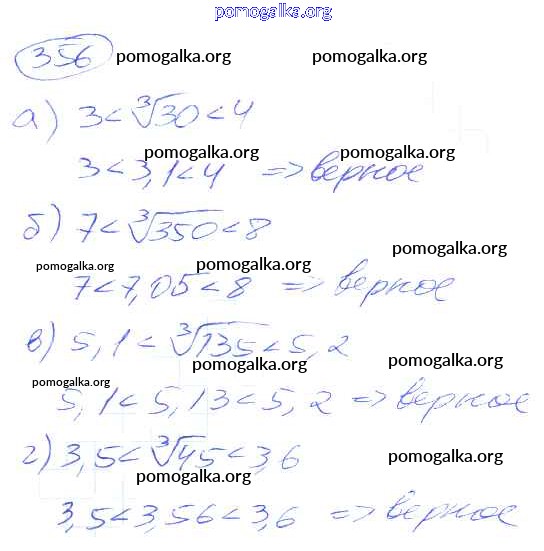 pomogalka.org
356 pomogalka.org pomogalka.org
а) 3 < ∛30 < 4
pomogalka.org pomogalka.org
3 < 3,1 < 4 => верное
б) 7 < ∛350 < 8
pomogalka.org
pomogalka.org pomogalka.org
7 < 7,05 < 8 => верное
в) 5,1 < ∛135 < 5,2
pomogalka.org pomogalka.org
pomogalka.org
5,1 < 5,13 < 5,2 => верное
г) 3,5 < ∛45 < 3,6
pomogalka.org pomogalka.org
3,5 < 3,56 < 3,6 => верное